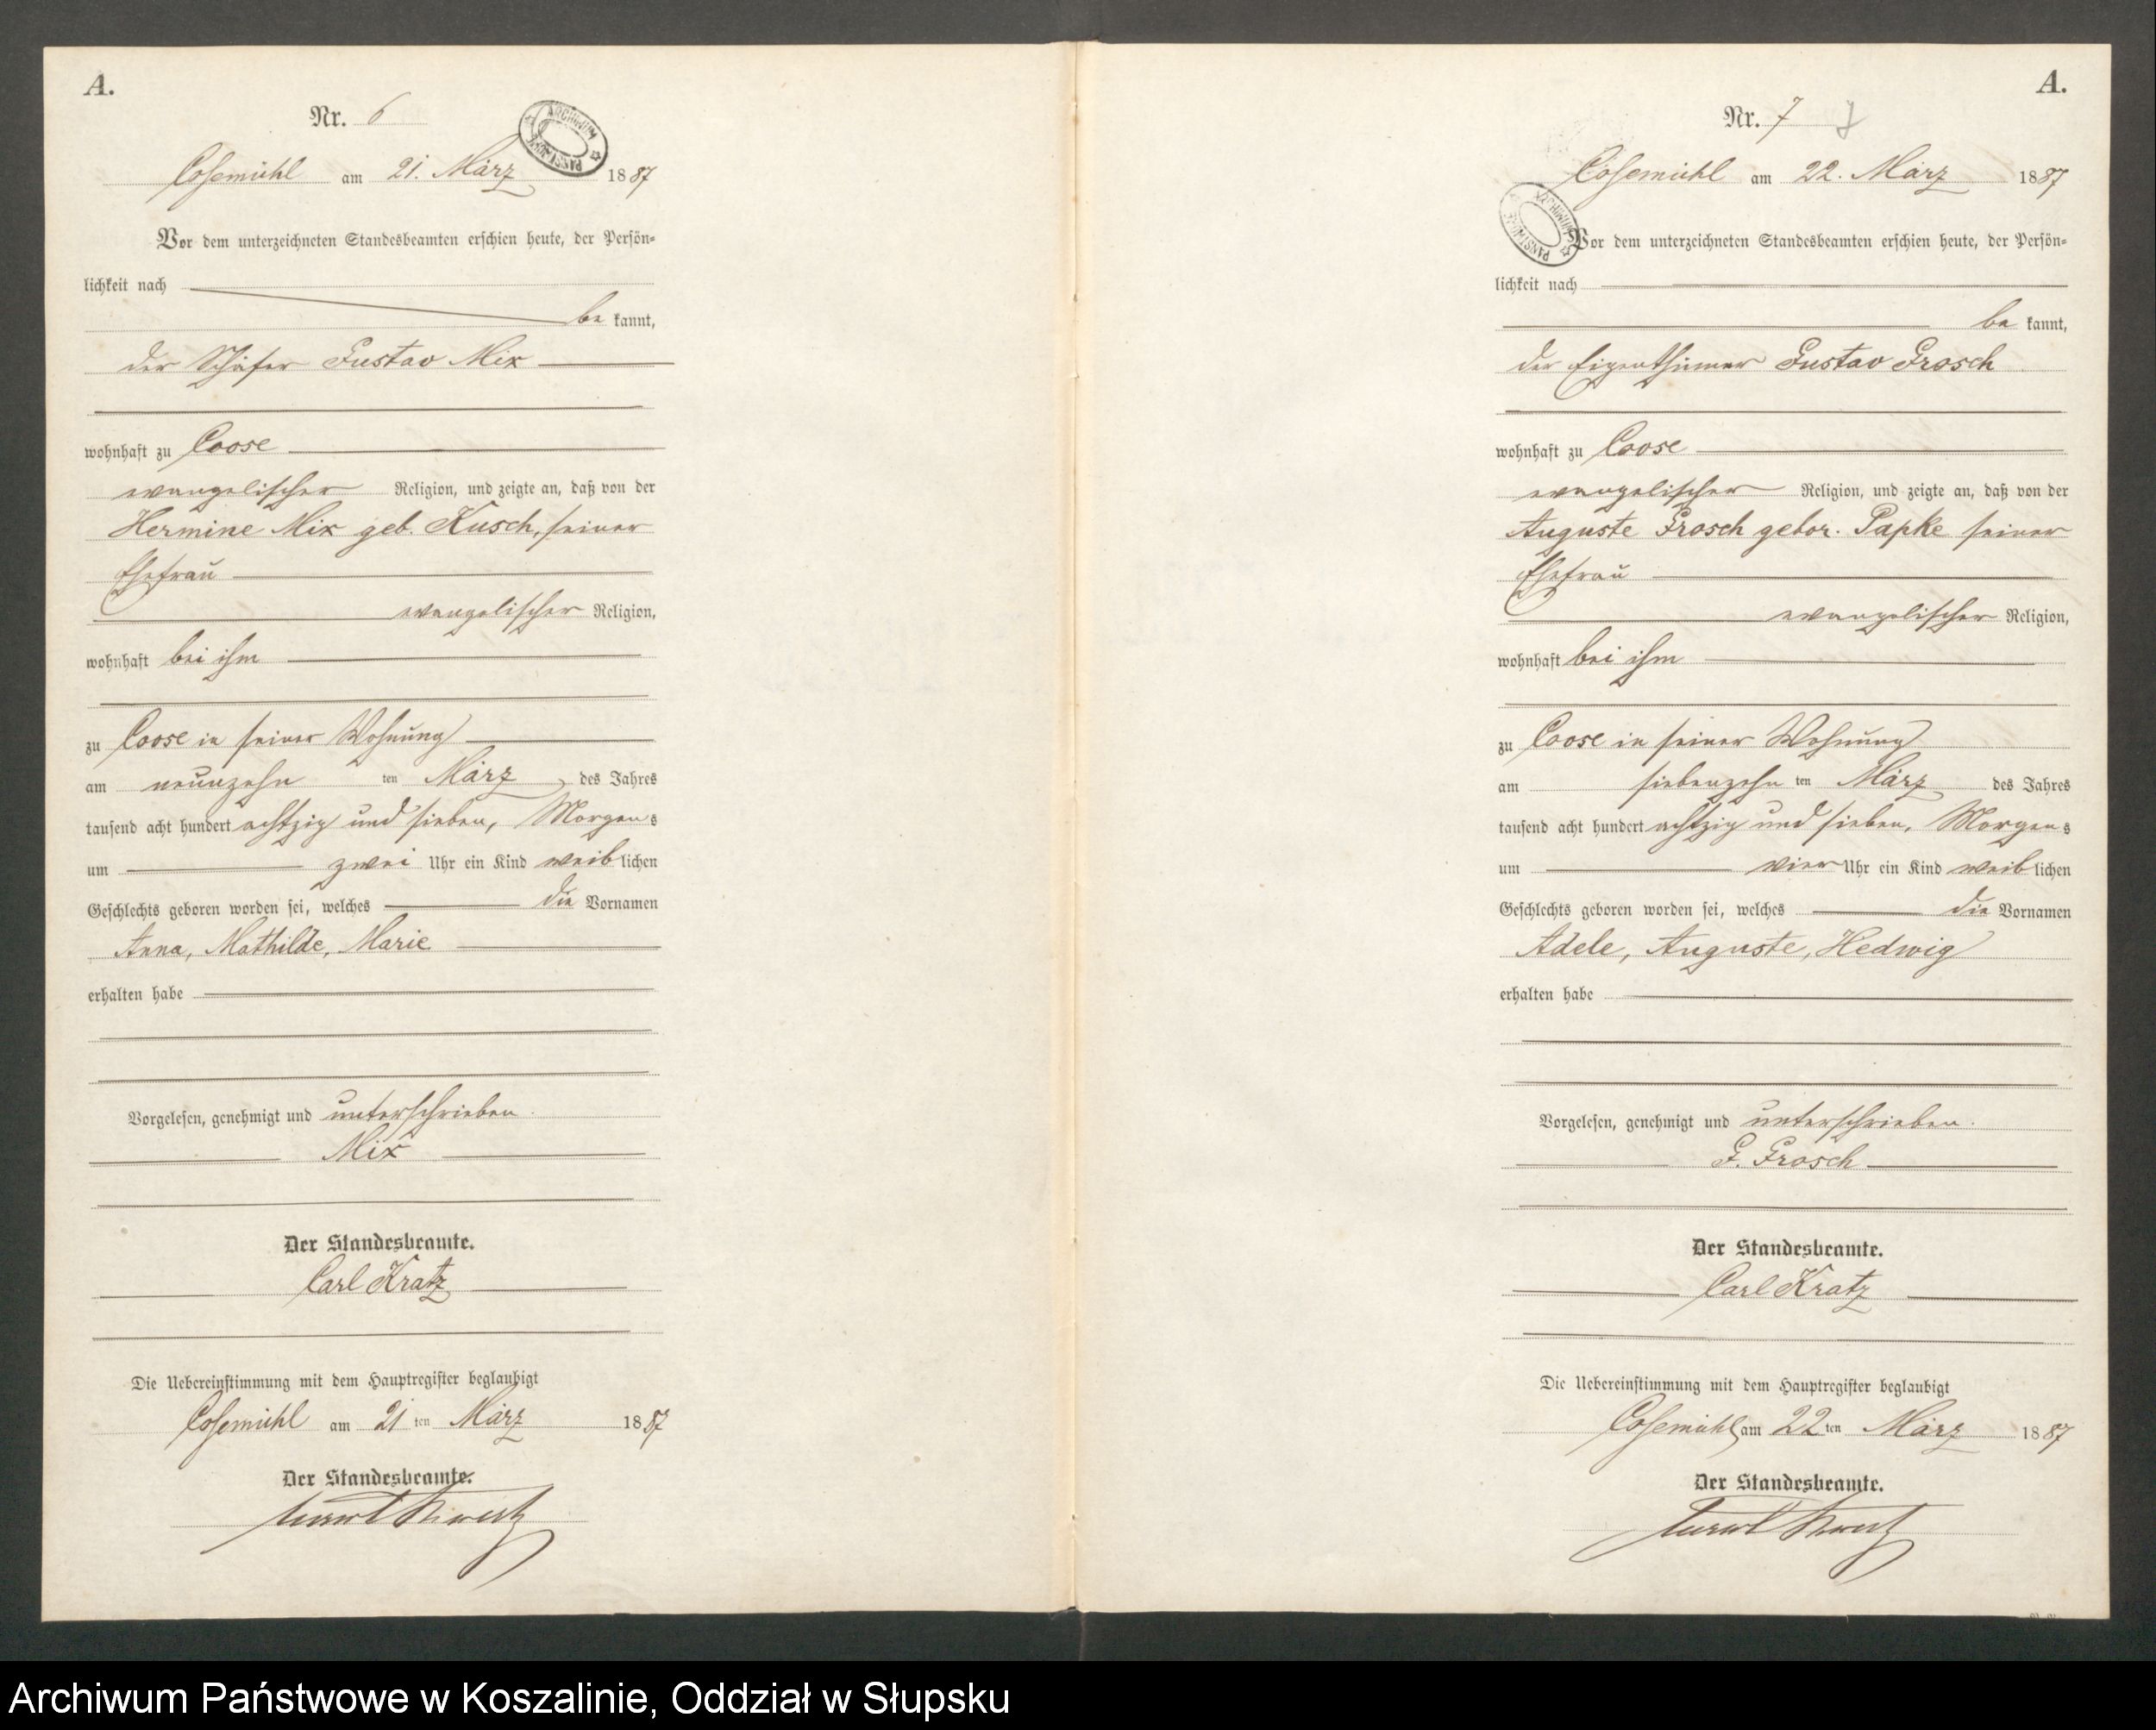 A.
Nr. 6
ARCHIWUM PAŃSTWOWE
Cosemühl am 21. März 1887
Vor dem unterzeichneten Standesbeamten erschien heute, der Persön=
lichkeit nach
be kannt,
der Schäfer Gustav Mix
wohnhaft zu Coose
evangelischer Religion, und zeigte an, daß von der
Hermine Mix geb. Kusch, seiner
Ehefrau
evangelischer Religion,
wohnhaft bei ihm
zu Coose in seiner Wohnung
am neunzehn ten März des Jahres
tausend acht hundert achtzig und sieben, Morgens
um zwei Uhr ein Kind weiblichen
Geschlechts geboren worden sei, welches die Vornamen
Anna, Mathilde, Marie
erhalten habe
Vorgelesen, genehmigt und unterschrieben.
Mix
Der Standesbeamte.
Carl Kratz
Die Uebereinstimmung mit dem Hauptregister beglaubigt
Cosemühl am 21 ten März 1887
Der Standesbeamte.
Carl Kratz
A.
Nr. 7 7
Cosemühl am 22. März 1887
ARCHIWUM PAŃSTWOWE
Vor dem unterzeichneten Standesbeamten erschien heute, der Persön=
lichkeit nach
be kannt,
der Eigenthümer Gustav Grosch
wohnhaft zu Coose
evangelischer Religion, und zeigte an, daß von der
Auguste Grosch gebor. Papke seiner
Ehefrau
evangelischer Religion,
wohnhaft bei ihm
zu Coose in seiner Wohnung
am siebenzehn ten März des Jahres
tausend acht hundert achtzig und sieben, Morgens
um vier Uhr ein Kind weiblichen
Geschlechts geboren worden sei, welches die Vornamen
Adele, Auguste, Hedwig
erhalten habe
Vorgelesen, genehmigt und unterschrieben.
G. Grosch
Der Standesbeamte.
Carl Kratz
Die Uebereinstimmung mit dem Hauptregister beglaubigt
Cosemühl am 22 ten März 1887
Der Standesbeamte.
Carl Kratz
Archiwum Państwowe w Koszalinie, Oddział w Słupsku